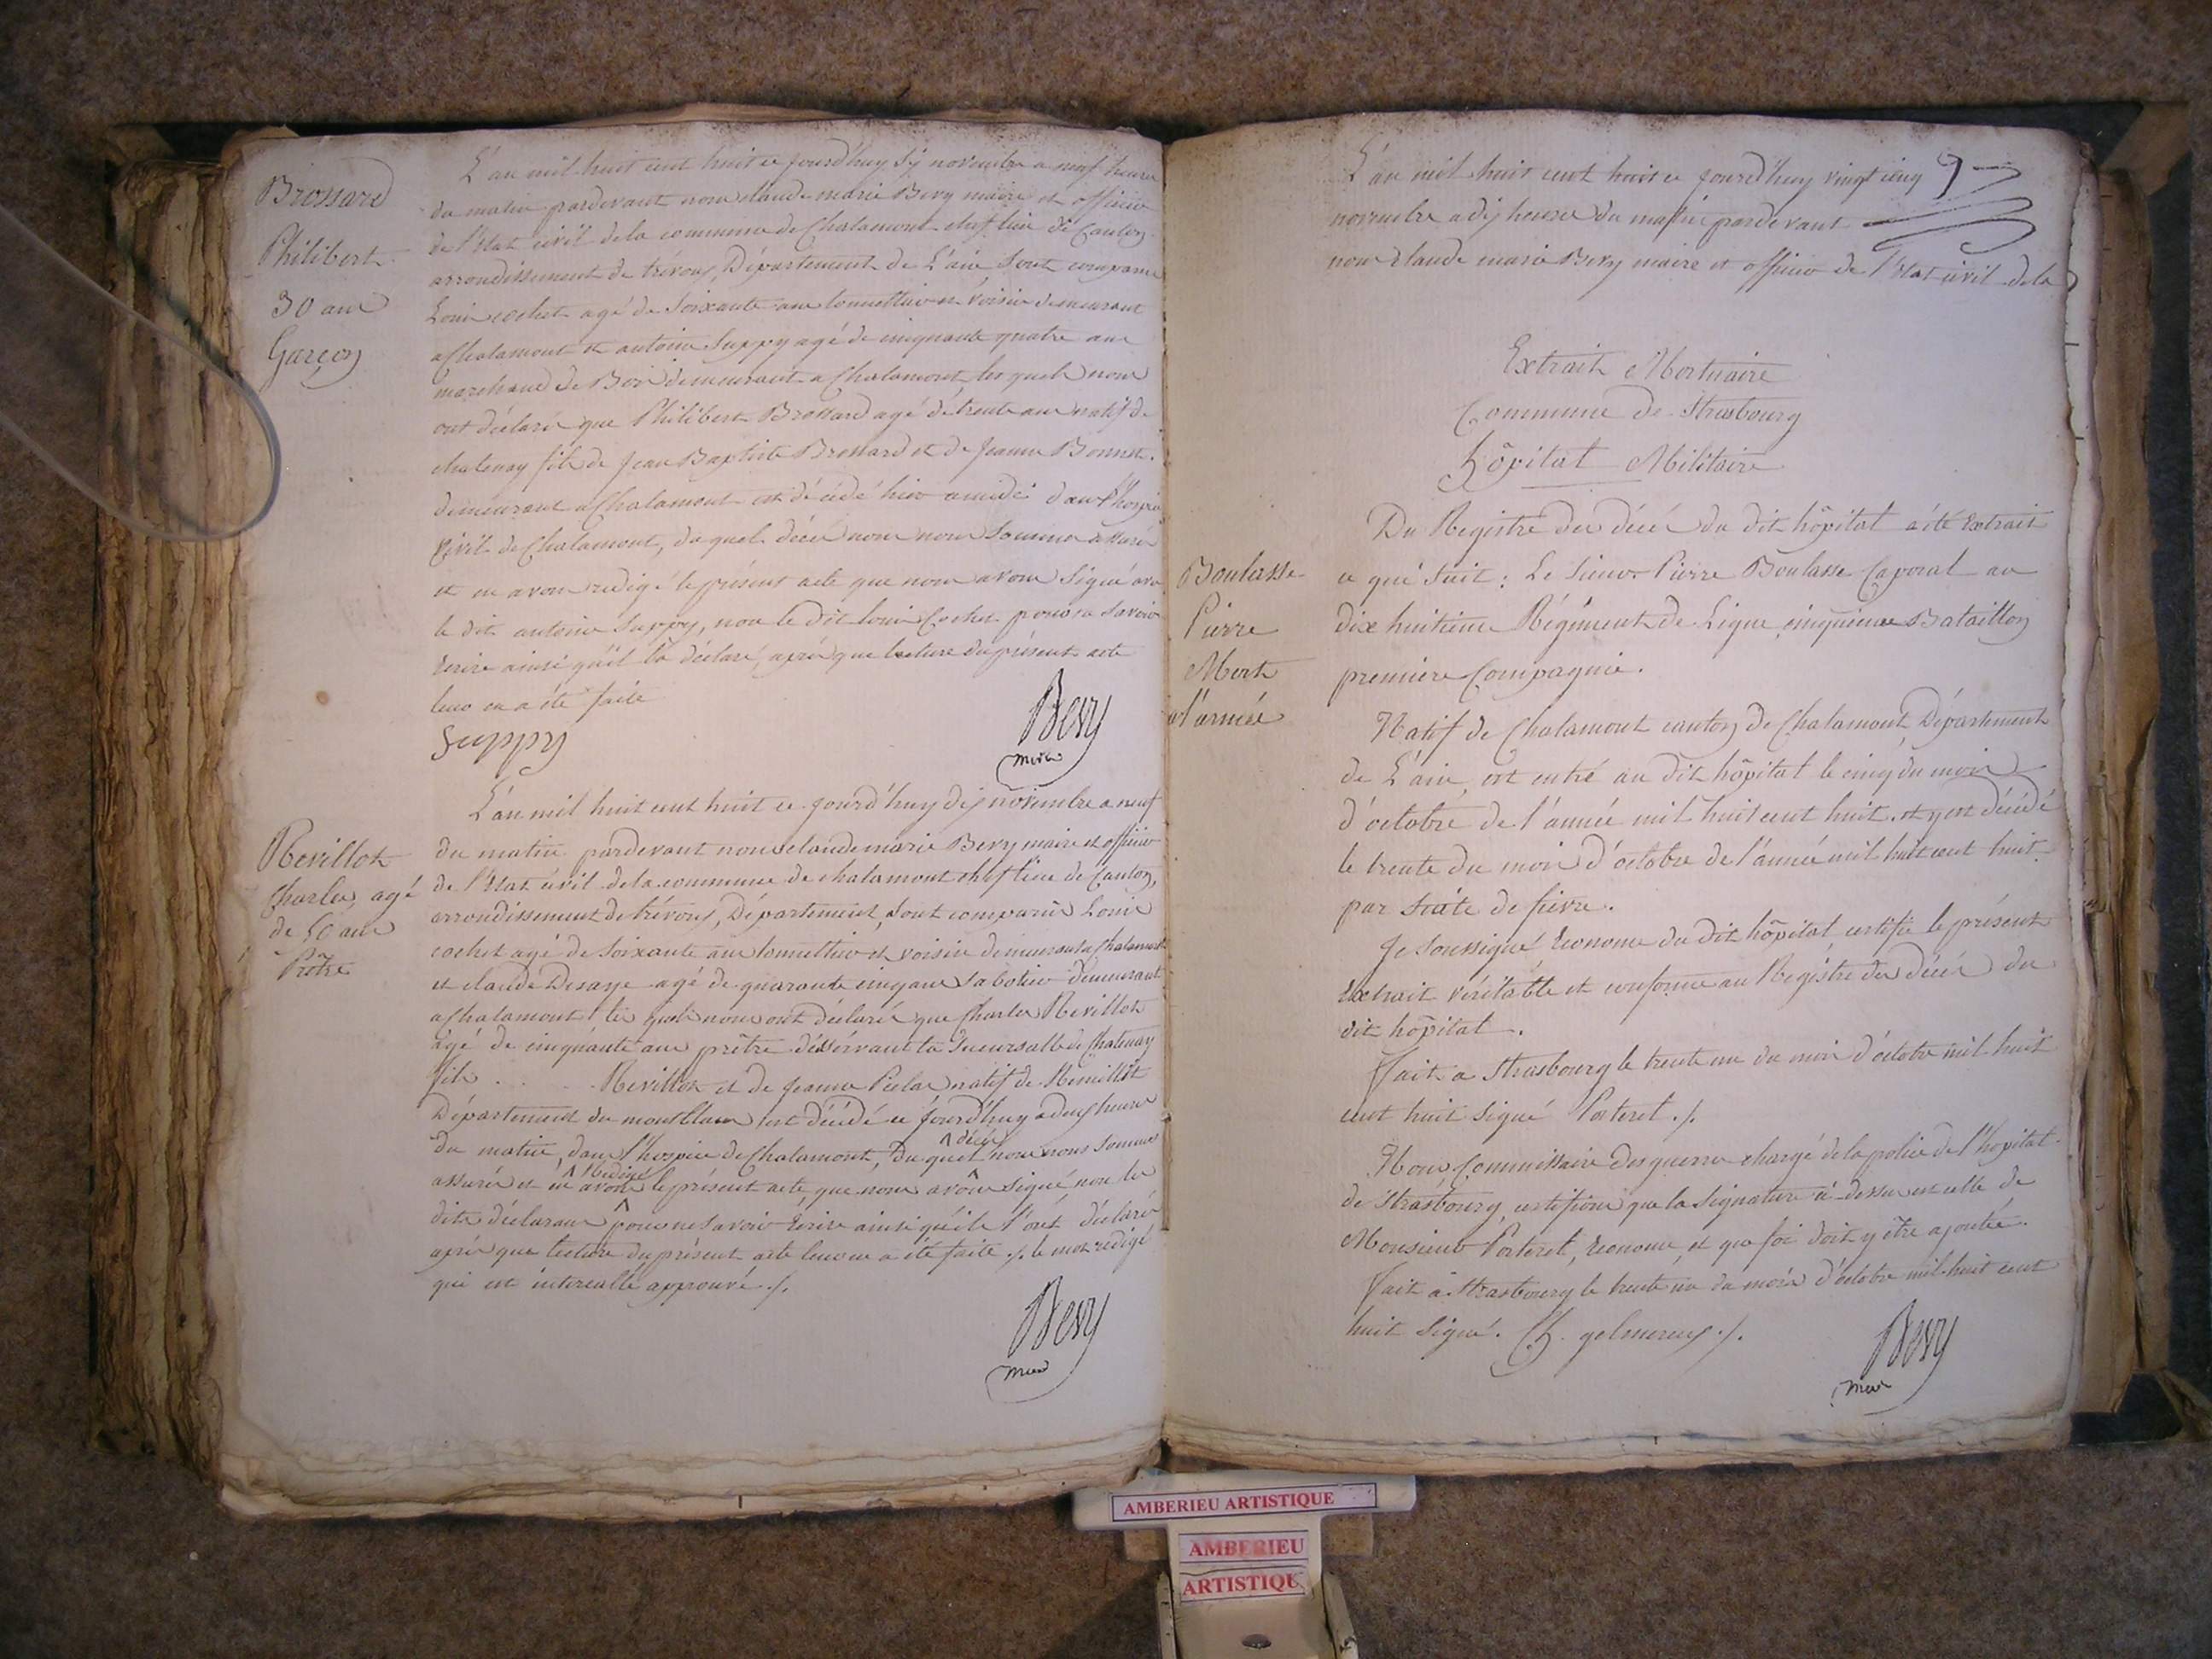 Brossard
Philibert
30 ans
Garçon
L'an mil huit cent huit ce jourd'huy six novembre a neuf heures
du matin pardevant nous claude marie Bevy maire et officier
de l'Etat civil de la commune de Chalamont chef lieu de Canton
arrondissement de trévoux, Département de L'ain, sont comparus
Louis cochet agé de Soixante ans tonnellier et voisin demeurant
a Chalamont et antoine Suppy agé de cinquante quatre ans
marchand de Bois demeurant a Chalamont, les quels nous
ont déclaré que Philibert Brossard agé de trente ans natif de
chatenay fils de Jean Baptiste Brossard et de Jeanne Bonnet
demeurant a Chalamont est décédé hier a midi dans l'hospice
Civil de Chalamont, du quel décès nous nous sommes assurés
et en avons redigé le présent acte que nous avons signé avec
le dit antoine Suppy, non le dit louis Cochet pour ne savoir
Ecrire ainsi qu'il l'a déclaré, après que lecture du présent acte
leur en a été faite
Suppy
Bevy
maire
Revillot
Charles, agé
de 50 ans
Prêtre
L'an mil huit cent huit ce jourd'huy dix novembre a neuf
du matin pardevant nous claude marie Bevy maire et officier
de l'Etat civil de la commune de chalamont chef lieu de Canton,
arrondissement de trévoux, Département, sont comparus Louis
cochet agé de Soixante ans tonnellier et voisin demeurant a Chalamont
et claude Desaye agé de quarante cinq ans sabotier demeurant
a Chalamont les quels nous ont déclaré que Charles Revillot
agé de cinquante ans prêtre désservant la Sucursalle de Chatenay
fils . . . . Revillot et de Jeanne natif de
Département du montblanc est décédé ce jourd'huy a deux heures
du matin, dans l'hospice de Chalamont, du quel décès nous nous sommes
assurés et en avons rédigé le présent acte, que nous avons signé, non les
dits déclarans pour ne savoir Ecrire ainsi qu'ils l'ont déclaré
après que lecture du présent acte leur en a été faite ./. le mot redigé
qui est intercallé approuvé ./.
Bevy
maire
L'an mil huit cent huit ce jourd'huy vingt cinq 9
novembre a dix heures du matin pardevant
nous claude marie Bevy maire et officier de l'Etat civil de la
Extrait Mortuaire
Commune de Strasbourg
hôpital Militaire
Boulasse
Pierre
Mort
a l'armée
Du Registre des décès du dit hôpital a été Extrait
ce qui suit : Le Sieur Pierre Boulasse Caporal au
dix huitième Régiment de Ligne cinquième Bataillon
première Compagnie.
Natif de Chalamont canton de Chalamont Département
de L'ain, est entré au dit hôpital le cinq du mois
d'octobre de l'année mil huit cent huit. et y est décédé
le trente du mois d'octobre de l'année mil huit cent huit
par suite de fièvre.
Je soussigné Econome du dit hôpital certifie le présent
Extrait véritable et conforme au Registre des décès du
dit hôpital.
Fait a Strasbourg le trente un du mois d'octobre mil huit
cent huit signé Porteret ./.
Nous Commissaire des guerres chargé de la police de l'hopital
de Strasbourg certifions que la signature ci-dessus est celle de
Monsieur Porteret, Econome, et que foi doit y être ajoutée.
Fait à Strasbourg le trente un du mois d'octobre mil huit cent
huit Signé.
Bevy
maire
AMBERIEU ARTISTIQUE
AMBERIEU
ARTISTIQUE